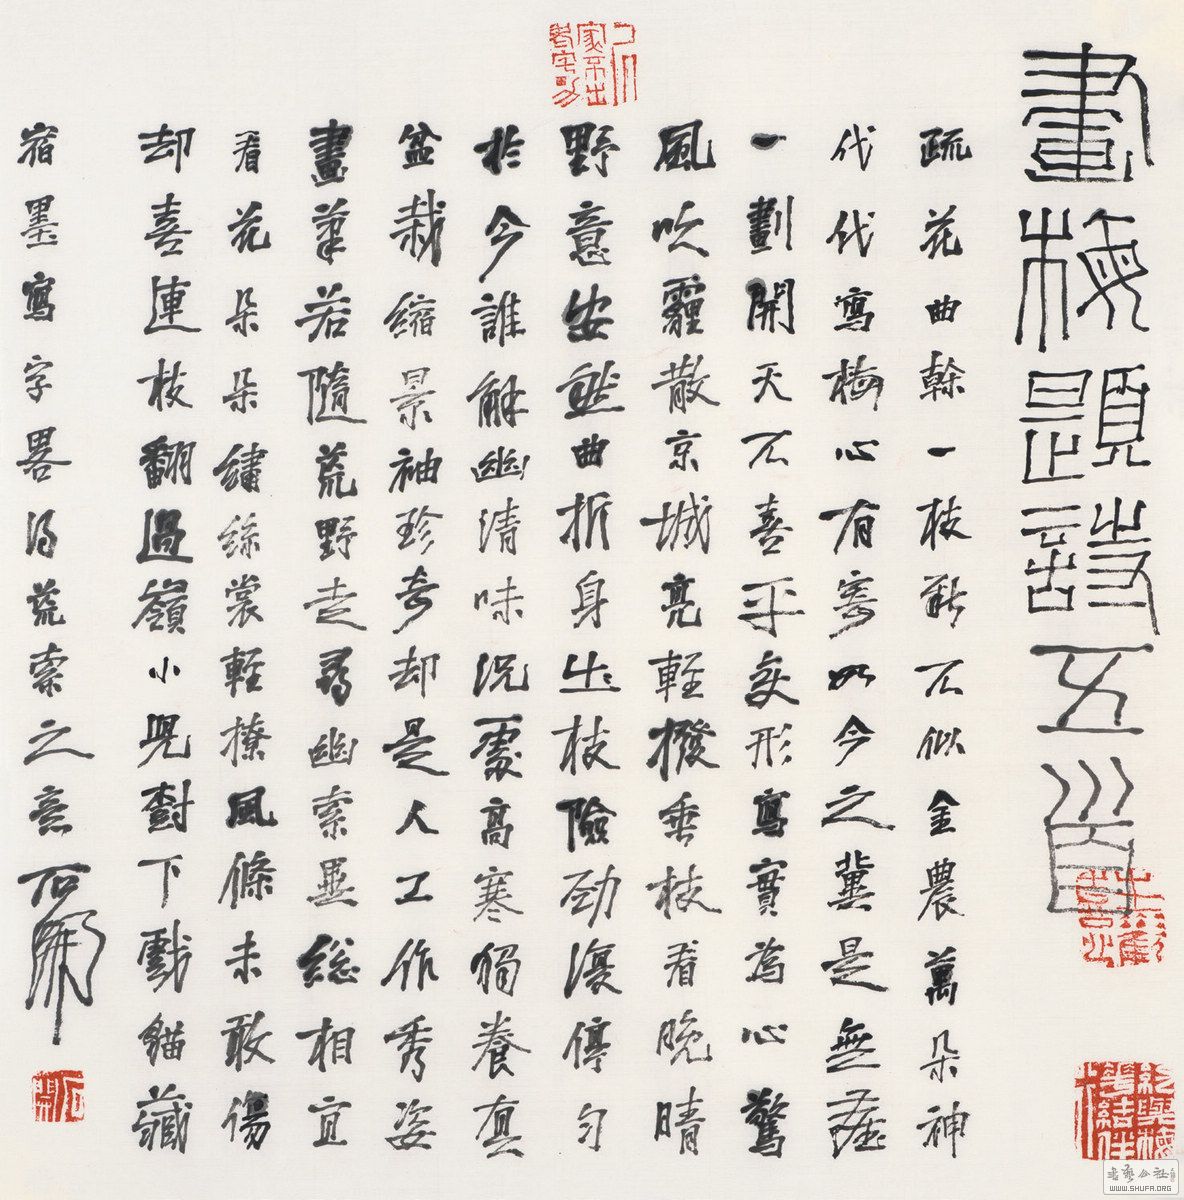 畫梅題詩五首
疏花曲幹一枝新不似金農萬朵神
代代寫梅心有寄如今之冀是無塵
一劃開天不喜平變形寫實為心驚
風吹霾散京城亮輕撥垂枝看晚晴
野意安然曲折身出枝險勁復停勻
於今誰解幽清味況處高寒獨養真
盆栽縮景袖珍奇却是人工作秀姿
畫筆若隨荒野走尋幽索墨總相宜
看花朵朵繡絲裳輕撩風條未敢傷
却喜連枝翻過嶺小兒樹下戲貓藏
宿墨寫字畧得荒索之意 石開
石開
書藝公社
WWW.SHUFA.ORG